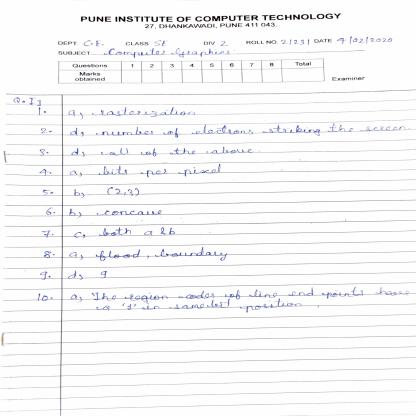 PUNE INSTITUTE OF COMPUTER TECHNOLOGY
27, DHANKAWADI, PUNE 411 043.
DEPT. C.E. CLASS SE DIV 2 ROLL NO. 21231 DATE 4/02/2020
SUBJECT Computer Graphics
Questions 1 2 3 4 5 6 7 8 Total
Marks obtained
Examiner
Q.1]
1. a) rasterization
2. d) number of electrons striking the screen
3. d) all of the above
4. a) bits per pixel
5. b) (2,3)
6. b) concave
7. c) both a & b
8. a) flood, boundary
9. d) 9
10. a) The region codes of line end points have
a '1' in same bit position.